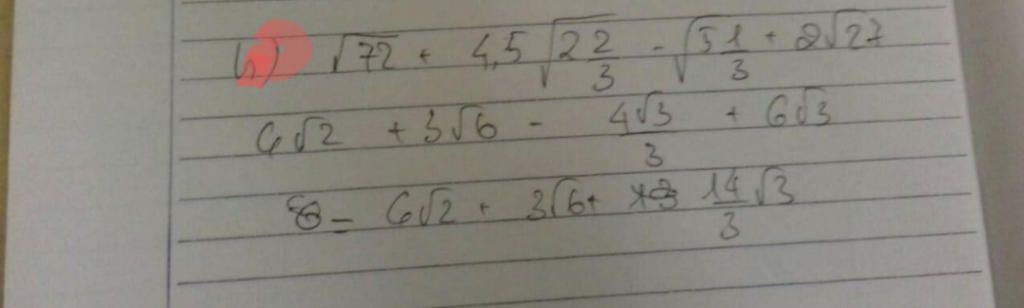 h) √72 + 4,5 √(2 2/3) - √(5 1/3) + 2√27
6√2 + 3√6 - 4√3/3 + 6√3
= 6√2 + 3√6 + 14/3 √3